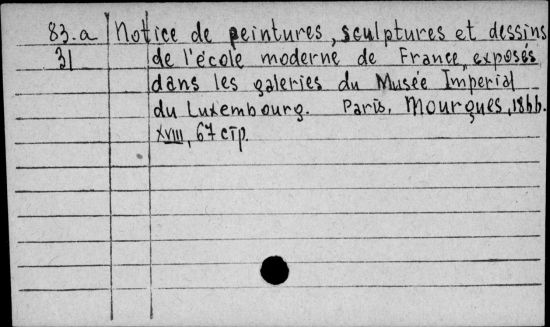 83.a Notice de peintures, sculptures et dessins
31 de l'école moderne de France, exposés
dans les galeries du Musée Imperial
du Luxembourg. Paris, Mourgues, 1866.
XVIII, 67 стр.